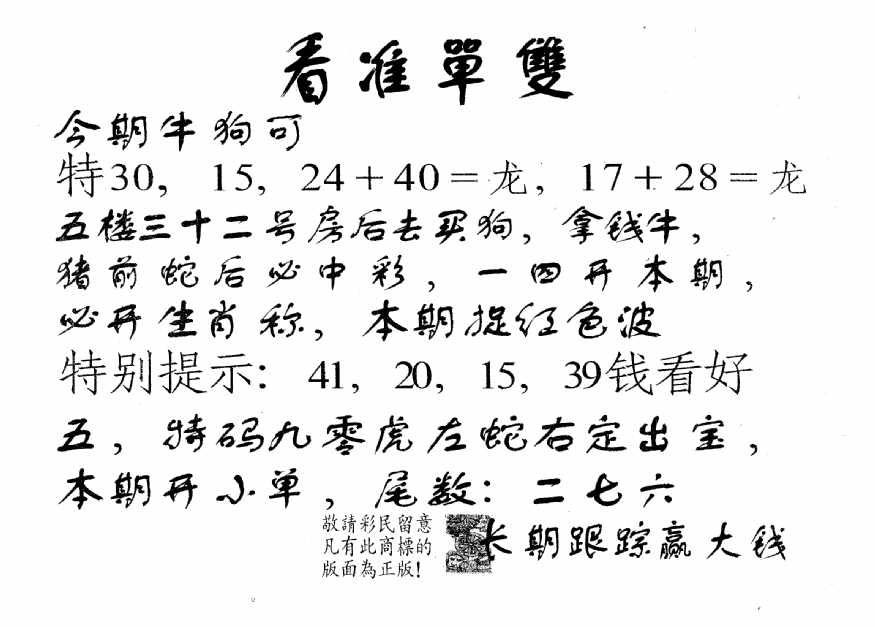 看准單雙
今期牛狗可
特30，15，24＋40＝龙，17＋28＝龙
五楼三十二号房后去买狗，拿钱牛，
猪前蛇后必中彩，一四开本期，
必开生肖称，本期捉红色波
特别提示：41，20，15，39钱看好
五，特码九零虎左蛇右定出宝，
本期开小单，尾数：二七六
敬請彩民留意
凡有此商標的
版面為正版！
长期跟踪赢大钱